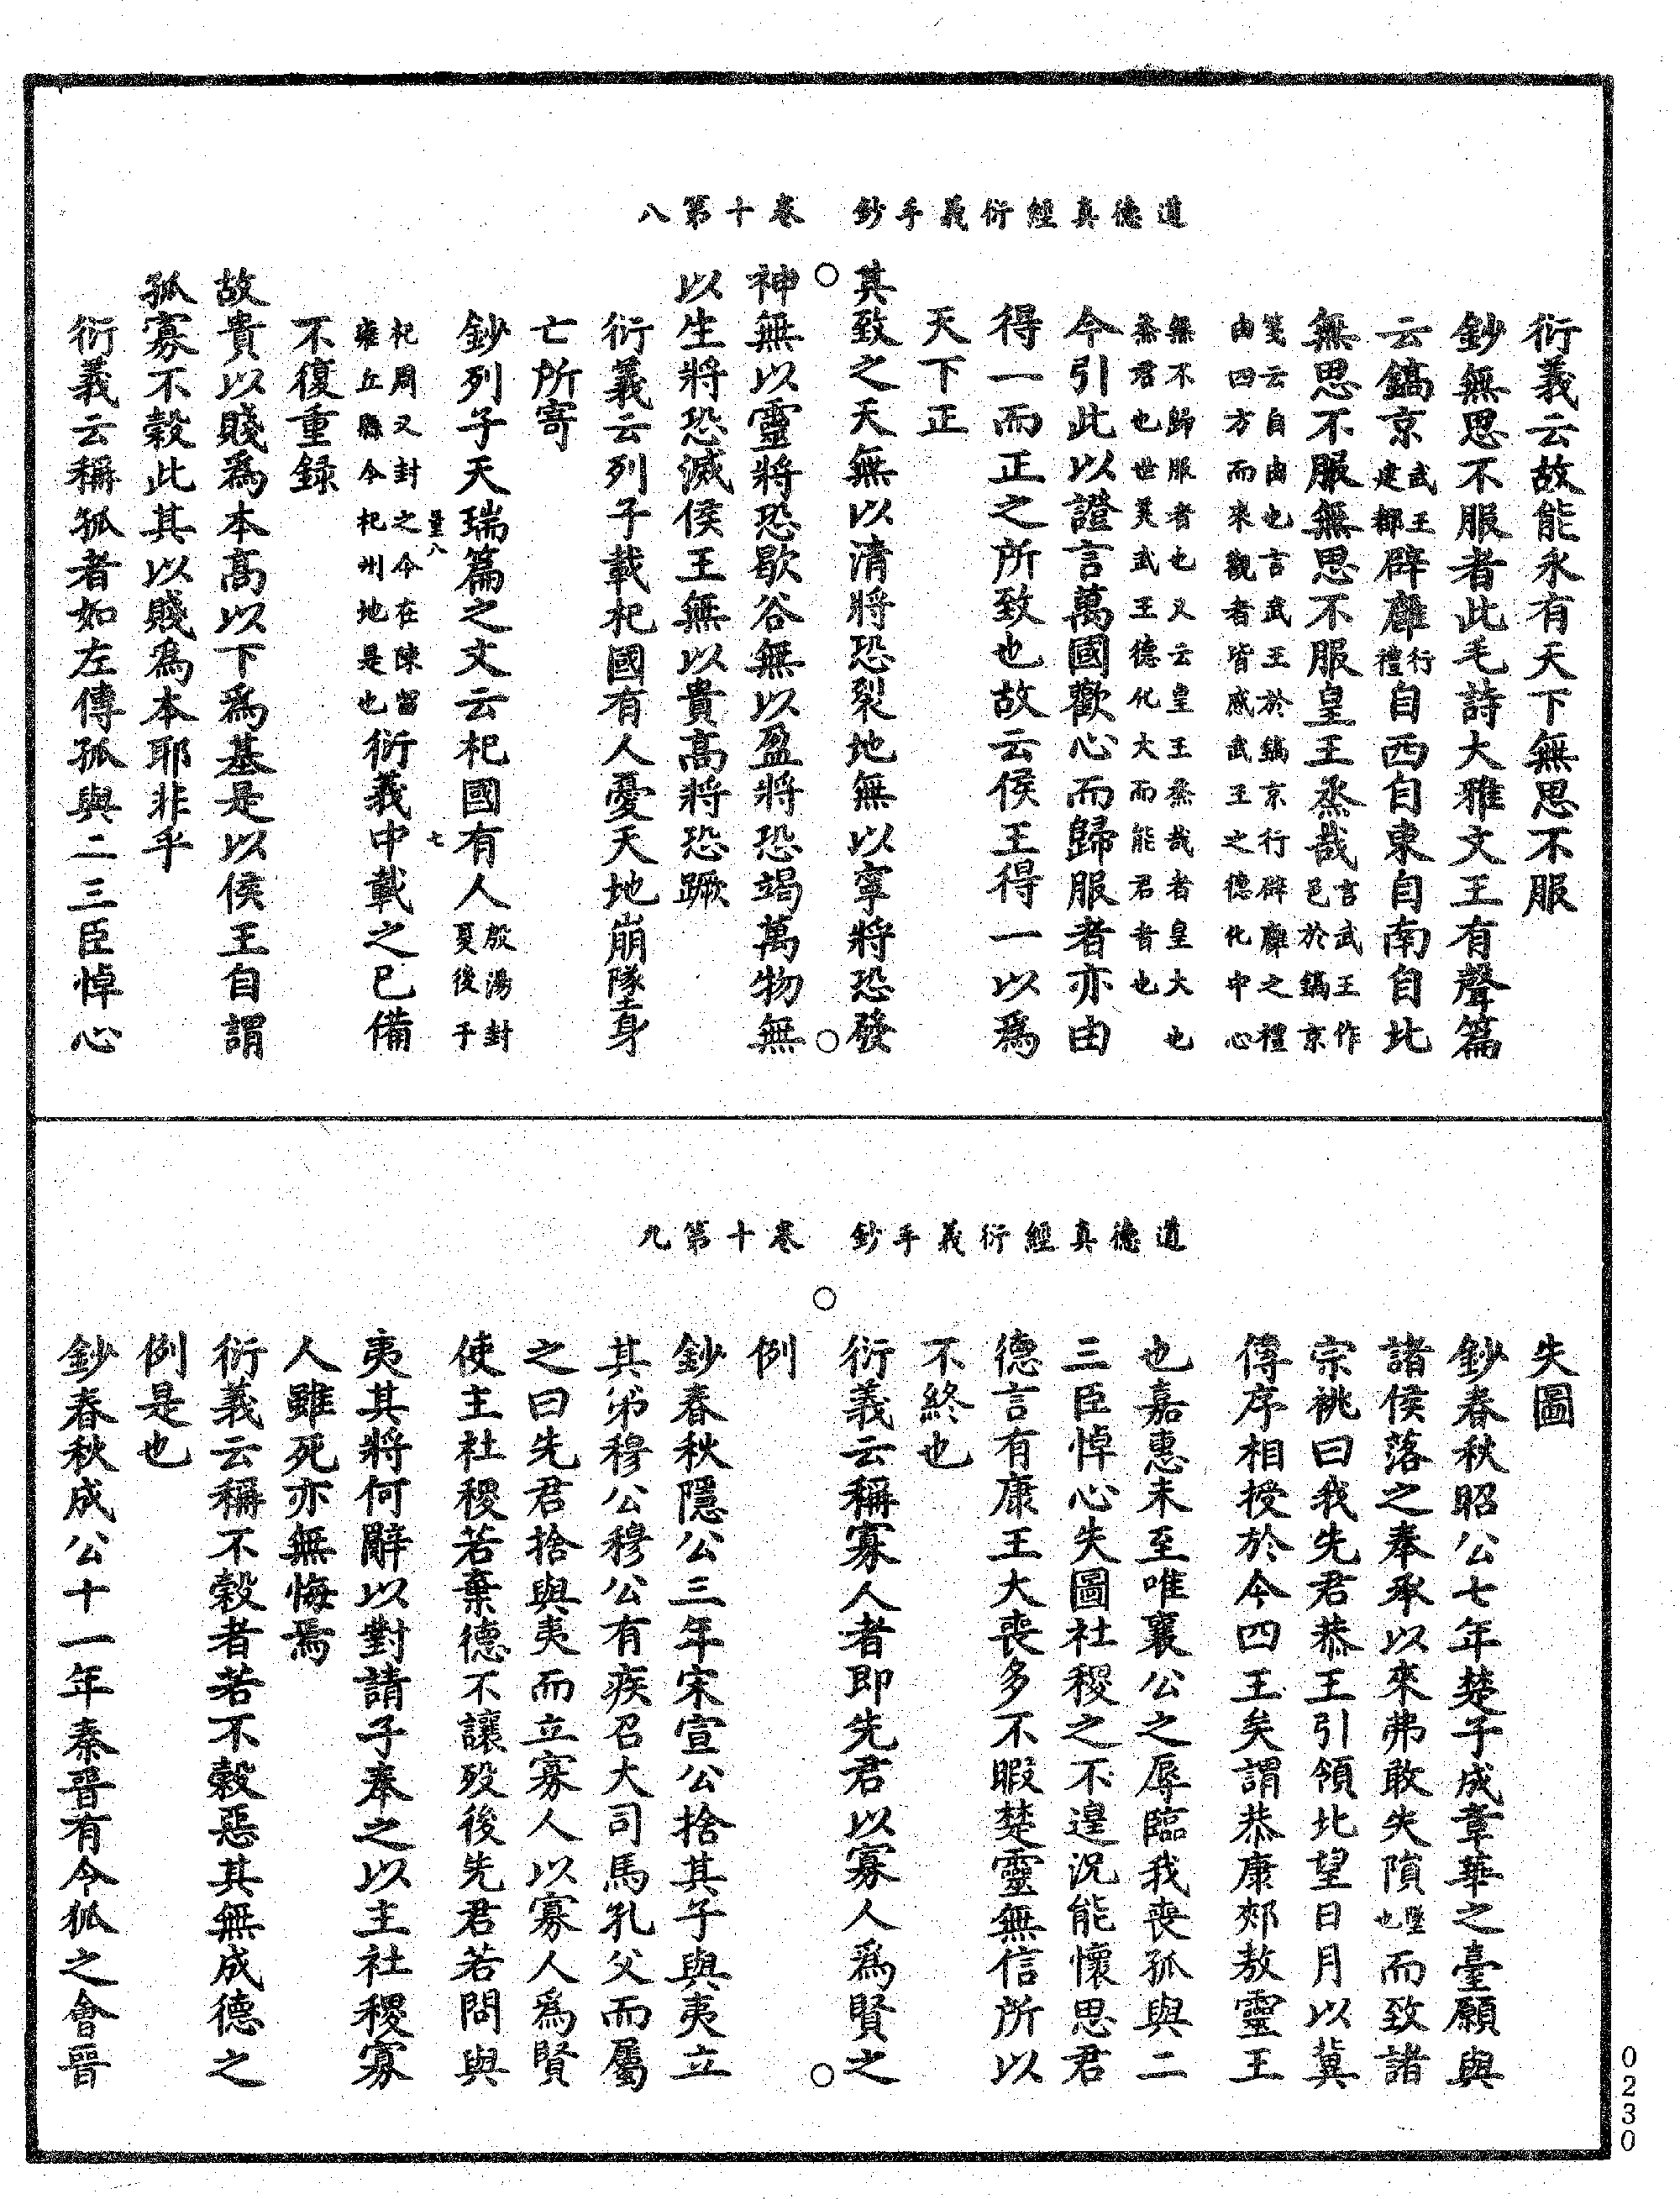 道德真經衍義手鈔　卷十第八
衍義云故能永有天下無思不服
鈔無思不服者此毛詩大雅文王有聲篇
云鎬京武王建都辟廱行禮自西自東自南自北
無思不服無思不服皇王烝哉言武王作邑於鎬京
箋云自由也言武王於鎬京行辟廱之禮由四方而來觀者皆感武王之德化中心
無不歸服者也又云皇王烝哉者皇大也烝君也世美武王德化大而能君者也
今引此以證言萬國歡心而歸服者亦由
得一而正之所致也故云侯王得一以爲
天下正
其致之天無以清將恐裂地無以寧將恐發
神無以靈將恐歇谷無以盈將恐竭萬物無
以生將恐滅侯王無以貴高將恐蹶
衍義云列子載杞國有人憂天地崩墜身
亡所寄
鈔列子天瑞篇之文云杞國有人殷湯封夏後于
量八　七
杞周又封之今在陳留雍丘縣今杞州地是也衍義中載之已備
不復重録
故貴以賤爲本高以下爲基是以侯王自謂
孤寡不穀此其以賤爲本耶非乎
衍義云稱孤者如左傳孤與二三臣悼心
道德真經衍義手鈔　卷十第九
失圖
鈔春秋昭公七年楚子成章華之臺願與
諸侯落之奉承以來弗敢失隕墜也而致諸
宗祧曰我先君恭王引領北望日月以冀
傳序相授於今四王矣謂恭康郟敖靈王
也嘉惠未至唯襄公之辱臨我喪孤與二
三臣悼心失圖社稷之不遑況能懷思君
德言有康王大喪多不暇楚靈無信所以
不終也
衍義云稱寡人者即先君以寡人爲賢之
例
鈔春秋隱公三年宋宣公捨其子與夷立
其弟穆公穆公有疾召大司馬孔父而屬
之曰先君捨與夷而立寡人以寡人爲賢
使主社稷若棄德不讓歿後先君若問與
夷其將何辭以對請子奉之以主社稷寡
人雖死亦無悔焉
衍義云稱不穀者若不穀惡其無成德之
例是也
鈔春秋成公十一年秦晉有令狐之會晉
0230